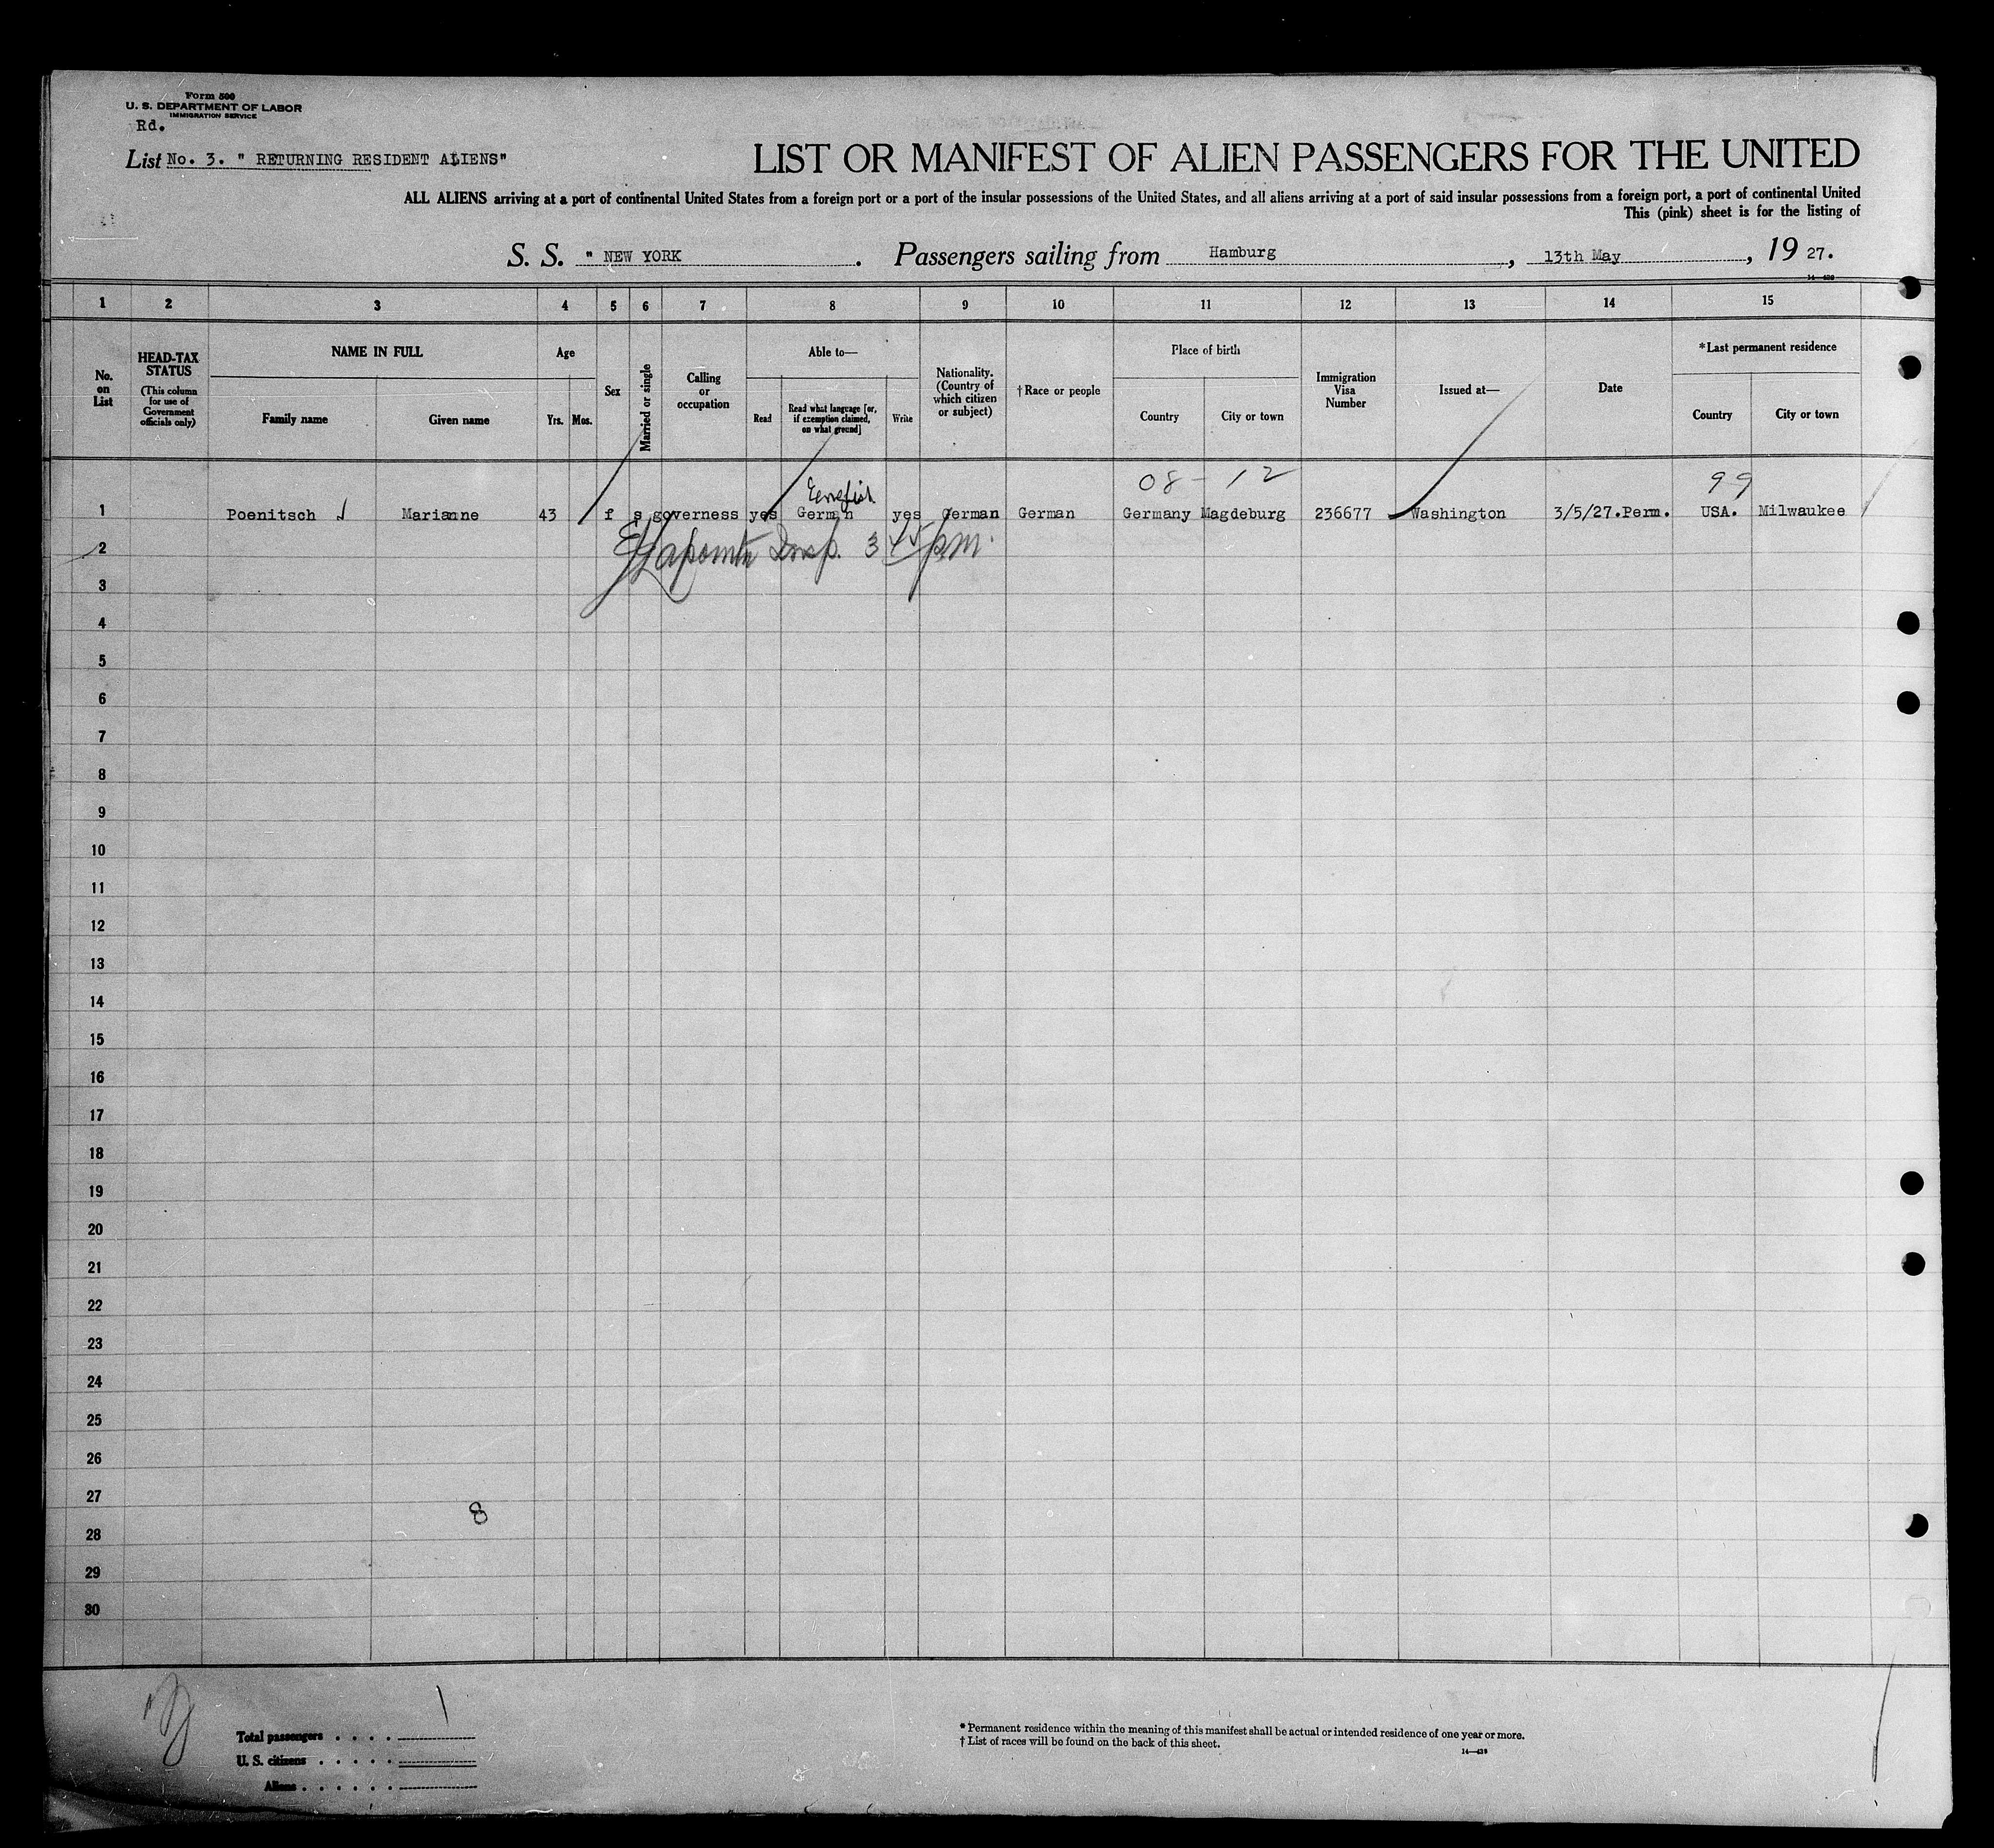 Form 500
U. S. DEPARTMENT OF LABOR
IMMIGRATION SERVICE
Rd.
List No. 3. " RETURNING RESIDENT ALIENS"
LIST OR MANIFEST OF ALIEN PASSENGERS FOR THE UNITED
ALL ALIENS arriving at a port of continental United States from a foreign port or a port of the insular possessions of the United States, and all aliens arriving at a port of said insular possessions from a foreign port, a port of continental United
This (pink) sheet is for the listing of
S. S. " NEW YORK . Passengers sailing from Hamburg , 13th May , 19 27.
14-428
1 2 3 4 5 6 7 8 9 10 11 12 13 14 15
No. on List
HEAD-TAX STATUS (This column for use of Government officials only)
NAME IN FULL
Family name Given name
Age
Yrs. Mos.
Sex
Married or single
Calling or occupation
Able to—
Read Read what language [or, if exemption claimed, on what ground] Write
Nationality. (Country of which citizen or subject)
† Race or people
Place of birth
Country City or town
Immigration Visa Number
Issued at—
Date
*Last permanent residence
Country City or town
08-12 99
1 Poenitsch Marianne 43 f s governess yes German yes German German Germany Magdeburg 236677 Washington 3/5/27.Perm. USA. Milwaukee
2 Insp. 3 45 pm.
3
4
5
6
7
8
9
10
11
12
13
14
15
16
17
18
19
20
21
22
23
24
25
26
27
8
28
29
30
Total passengers . . . . 1
U. S. citizens . . . . .
Aliens . . . . . .
* Permanent residence within the meaning of this manifest shall be actual or intended residence of one year or more.
† List of races will be found on the back of this sheet.
14-428